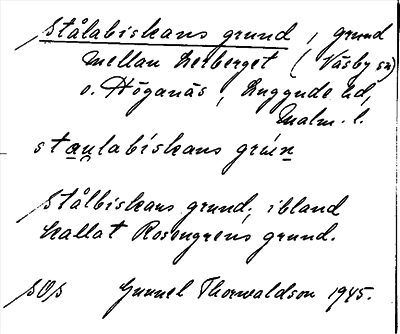 Stålabiskans grund, grund
mellan Lerberget (Väsby sn)
o. Höganäs, Luggude hd,
Malm. l.
staulabiskans grún
Stålbiskans grund; ibland
kallat Rosengrens grund.
SOS Gunnel Thorwaldson 1945.